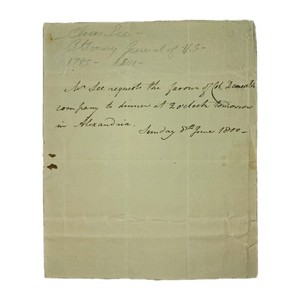 Chas Lee -
Attorney General of U.S -
1795 - 1801 -
Mr Lee requests the favour of Col Deneale's
company to dinner at 2 oclock tomorrow
in Alexandria.
Sunday 8th June 1800 -